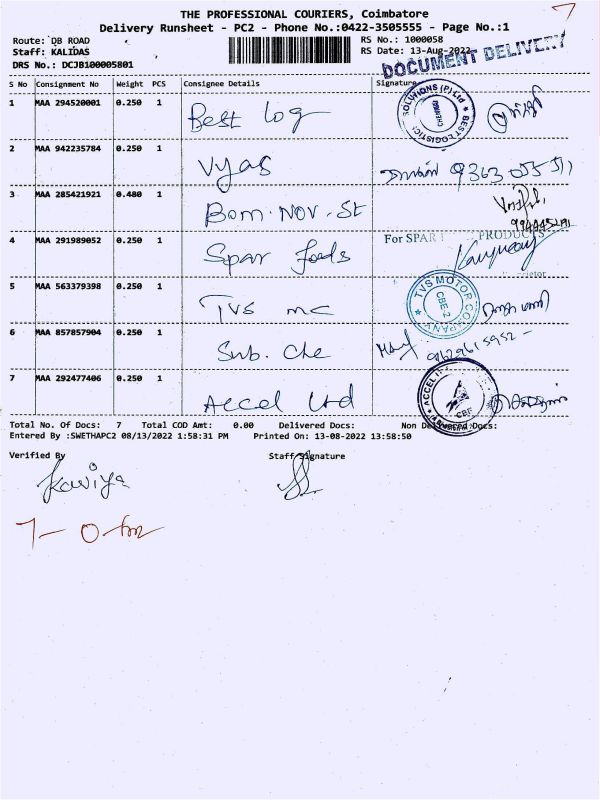 THE PROFESSIONAL COURIERS, Coimbatore
Delivery Runsheet - PC2 - Phone No.:0422-3505555 - Page No.:1
7
Route: DB ROAD
RS No.: 1000058
Staff: KALIDAS
RS Date: 13-Aug-2022
DRS No.: DCJB100005801
DOCUMENT DELIVERY
S No Consignment No Weight PCS Consignee Details Signature
1 MAA 294520001 0.250 1 Best Log
BEST LOGISTIC SOLUTIONS (P) Ltd
2 MAA 942235784 0.250 1 Vyas
3 MAA 285421921 0.480 1 Bom. Nov. St
4 MAA 291989052 0.250 1 Spar foods
For SPAR PRODUCTS
5 MAA 563379398 0.250 1 TVS mc
TVS MOTOR COMPANY CBE-2
6 MAA 857857904 0.250 1 Sub. Che
9629615952
7 MAA 292477406 0.250 1 Accel Ltd
CBE
Total No. Of Docs: 7 Total COD Amt: 0.00 Delivered Docs: Non Docs:
Entered By :SWETHAPC2 08/13/2022 1:58:31 PM Printed On: 13-08-2022 13:58:50
Verified By Staff Signature
Kaviya